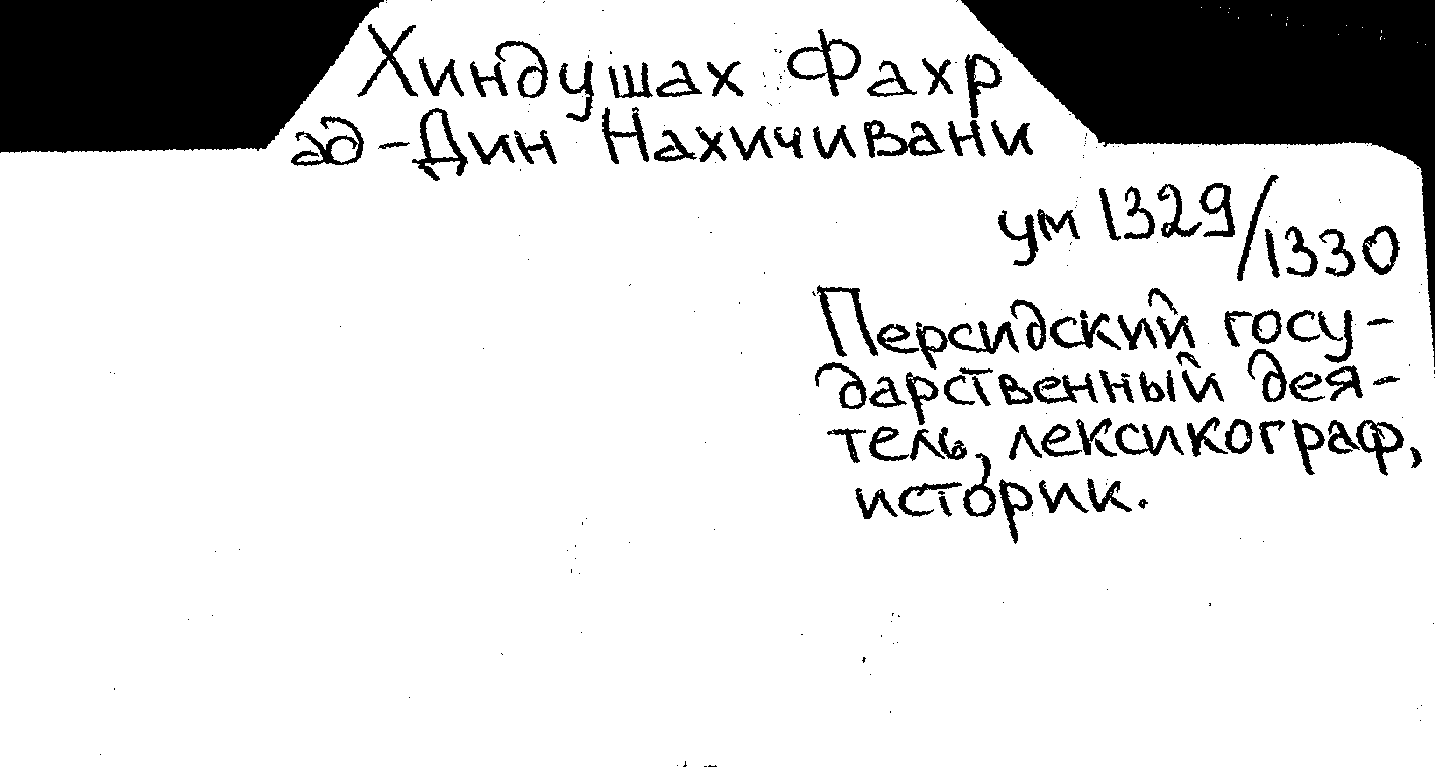 Хиндушах Фахр
ад-Дин Нахичивани
ум 1329/1330
Персидский госу-
дарственный дея-
тель, лексикограф,
историк.